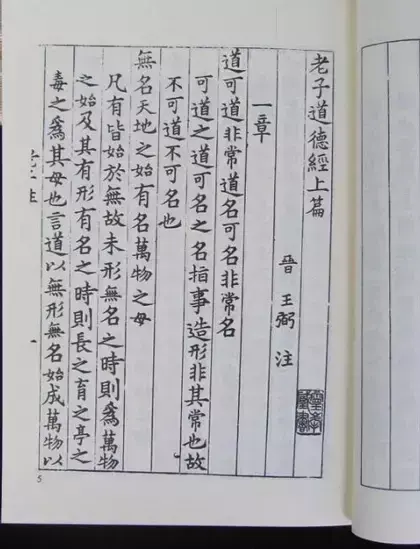 老子道德經上篇
晉 王弼 注
一章
道可道非常道名可名非常名
可道之道可名之名指事造形非其常也故
不可道不可名也
無名天地之始有名萬物之母
凡有皆始於無故未形無名之時則爲萬物
之始及其有形有名之時則長之育之亭之
毒之爲其母也言道以無形無名始成萬物以
一
5